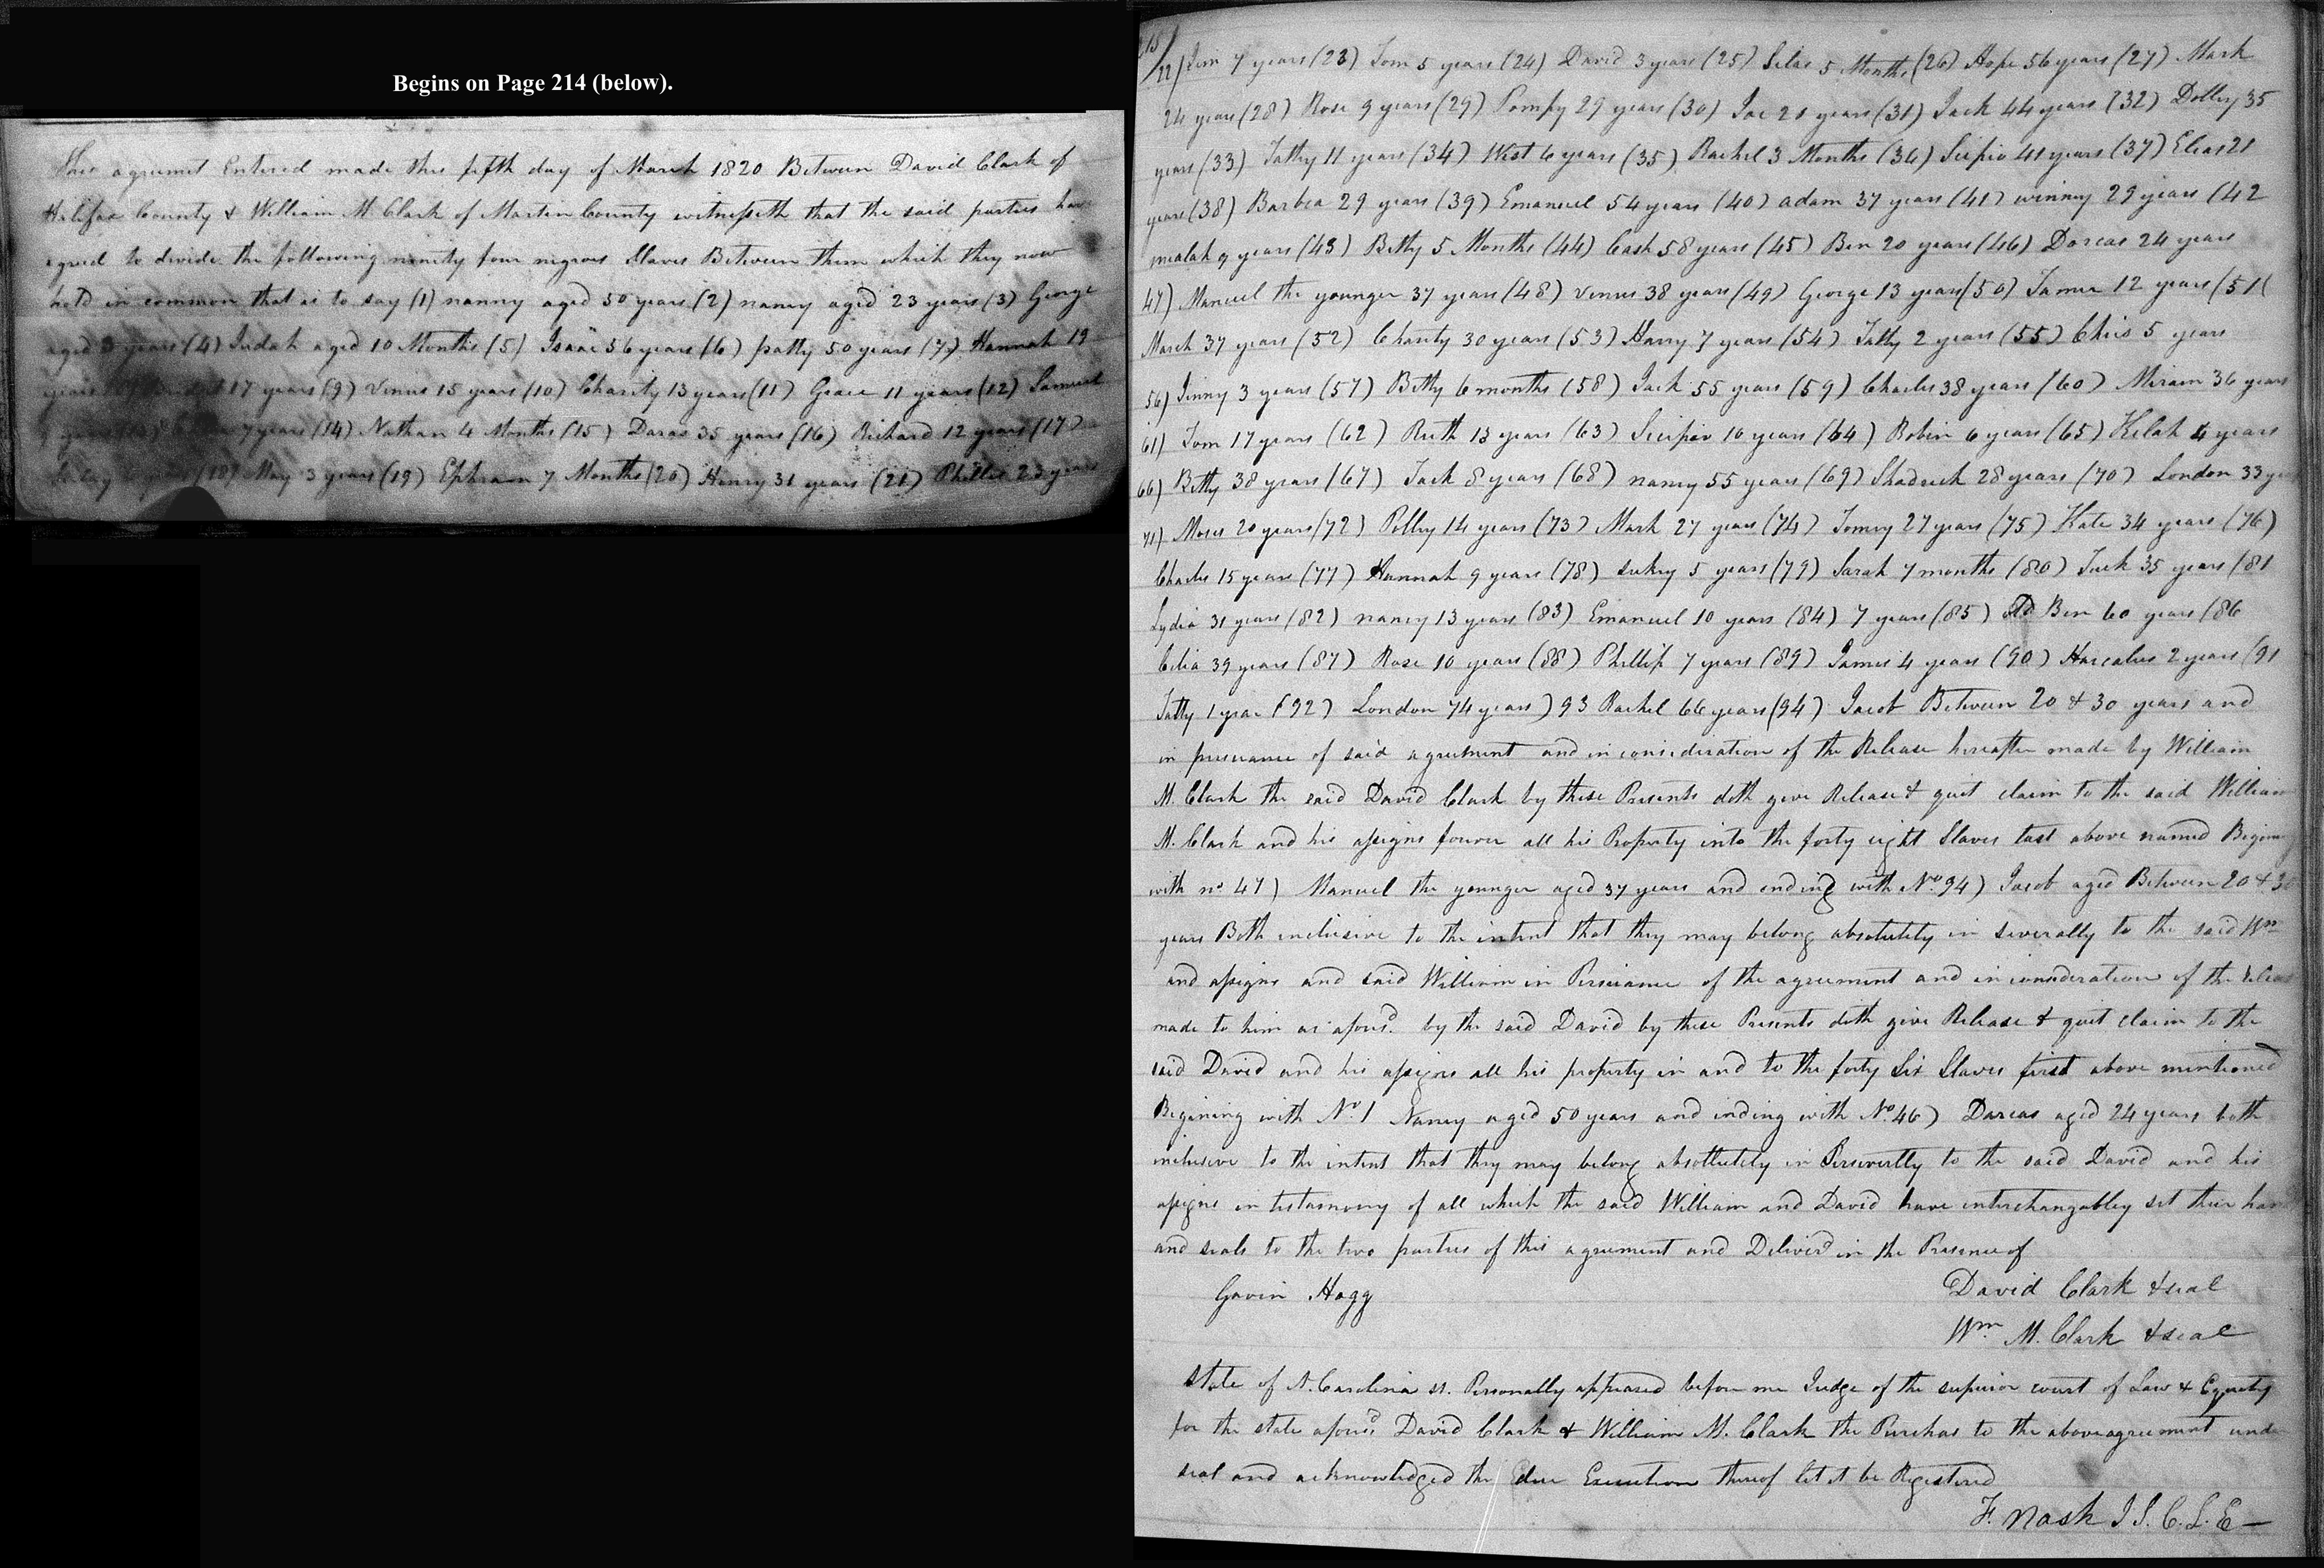 Begins on Page 214 (below).
This agreemet Entered made this fifth day of March 1820 Between David Clark of
Halifax County & William M Clark of Martin County witnesseth that the said parties have
agreed to divide the following ninety four negroes Slaves Between them which they now
held in common that is to say (1) nanny aged 50 years (2) nancy aged 23 years (3) George
aged 3 years (4) Judah aged 10 Months (5) Isaac 56 years (6) patty 50 years (7) Hannah 19
years 17 years (9) Venus 15 years (10) Charity 13 years (11) Grace 11 years (12) Samuel
7 years (14) Nathan 4 Months (15) Darcas 35 years (16) Richard 12 years (17)
(18) May 3 years (19) Ephraim 7 Months (20) Henry 31 years (21) Phillis 23 years
215
22) Jim 7 years (23) Tom 5 years (24) David 3 years (25) Silas 5 Months (26) Hope 56 years (27) Mark
24 years (28) Rose 9 years (29) Pompy 29 years (30) Joe 21 years (31) Jack 44 years (32) Dolly 35
years (33) Tathy 11 years (34) West 6 years (35) Rachel 3 Months (36) Scipio 41 years (37) Elias 21
years (38) Barbea 29 years (39) Emanuel 54 years (40) adam 37 years (41) winny 29 years (42
mealah 9 years (43) Betty 5 Months (44) Cash 58 years (45) Ben 20 years (46) Dorcas 24 years
47) Manuel the younger 37 years (48) Venus 38 years (49) George 13 years (50) Tamer 12 years (51(
March 37 years (52) Charity 30 years (53) Harry 7 years (54) Tathy 2 years (55) Chris 5 years
56) Jinny 3 years (57) Betty 6 months (58) Jack 55 years (59) Charles 38 years (60) Miriam 36 years
61) Tom 17 years (62) Ruth 13 years (63) Scipio 10 years (64) Robin 6 years (65) Kelah 4 years
66) Betty 38 years (67) Jack 8 years (68) nancy 55 years (69) Shadrick 28 years (70) London 33 ye
71) Moses 20 years (72) Polly 14 years (73) Mark 27 years (74) Tomey 27 years (75) Kate 34 years (76)
Charles 15 years (77) Hannah 9 years (78) sukey 5 years (79) Sarah 7 months (80) Jack 35 years (81
Lydia 31 years (82) nancy 13 years (83) Emanuel 10 years (84) 7 years (85) old Ben 60 years (86
Celia 39 years (87) Rose 10 years (88) Phillip 7 years (89) James 4 years (90) Harcalus 2 years (91
Tatty 1 year (92) London 74 years) 93 Rachel 66 years (94) Jacob Between 20 & 30 years and
in pursuance of said agreement and in consideration of the Release hereafter made by William
M. Clark the said David Clark by these Presents doth give Release & quit claim to the said William
M. Clark and his assigns forever all his Property into the forty eight Slaves last above named Begining
with no 47) Manuel the younger aged 37 years and ending with No 94) Jacob aged Between 20 & 30
years Both inclusive to the intent that they may belong absolutely in severally to the said Wm
and assigns and said William in Persuance of the agreement and in consideration of the release
made to him as aforsd. by the said David by these Presents doth give Release & quit claim to the
said David and his assigns all his property in and to the forty Six Slaves first above mentioned
Begining with No 1 Nanny aged 50 years and ending with No. 46) Darcas aged 24 years both
inclusive to the intent that they may belong absolutely in Perservertly to the said David and his
assigns in testamony of all which the said William and David have interchangably set their han
and seals to the two parties of this agreement and Deliverd in the Presence of
Gavin Hogg David Clark & seal
Wm. M. Clark & seal
State of N. Carolina ss. Personally appeared before me Judge of the superior court of Law & Equity
for the state aforesd David Clark & William M. Clark the Purchas to the above agreement under
seal and acknowledged the due Execution thereof let it be Registered
F. Nash J S. C. L. E